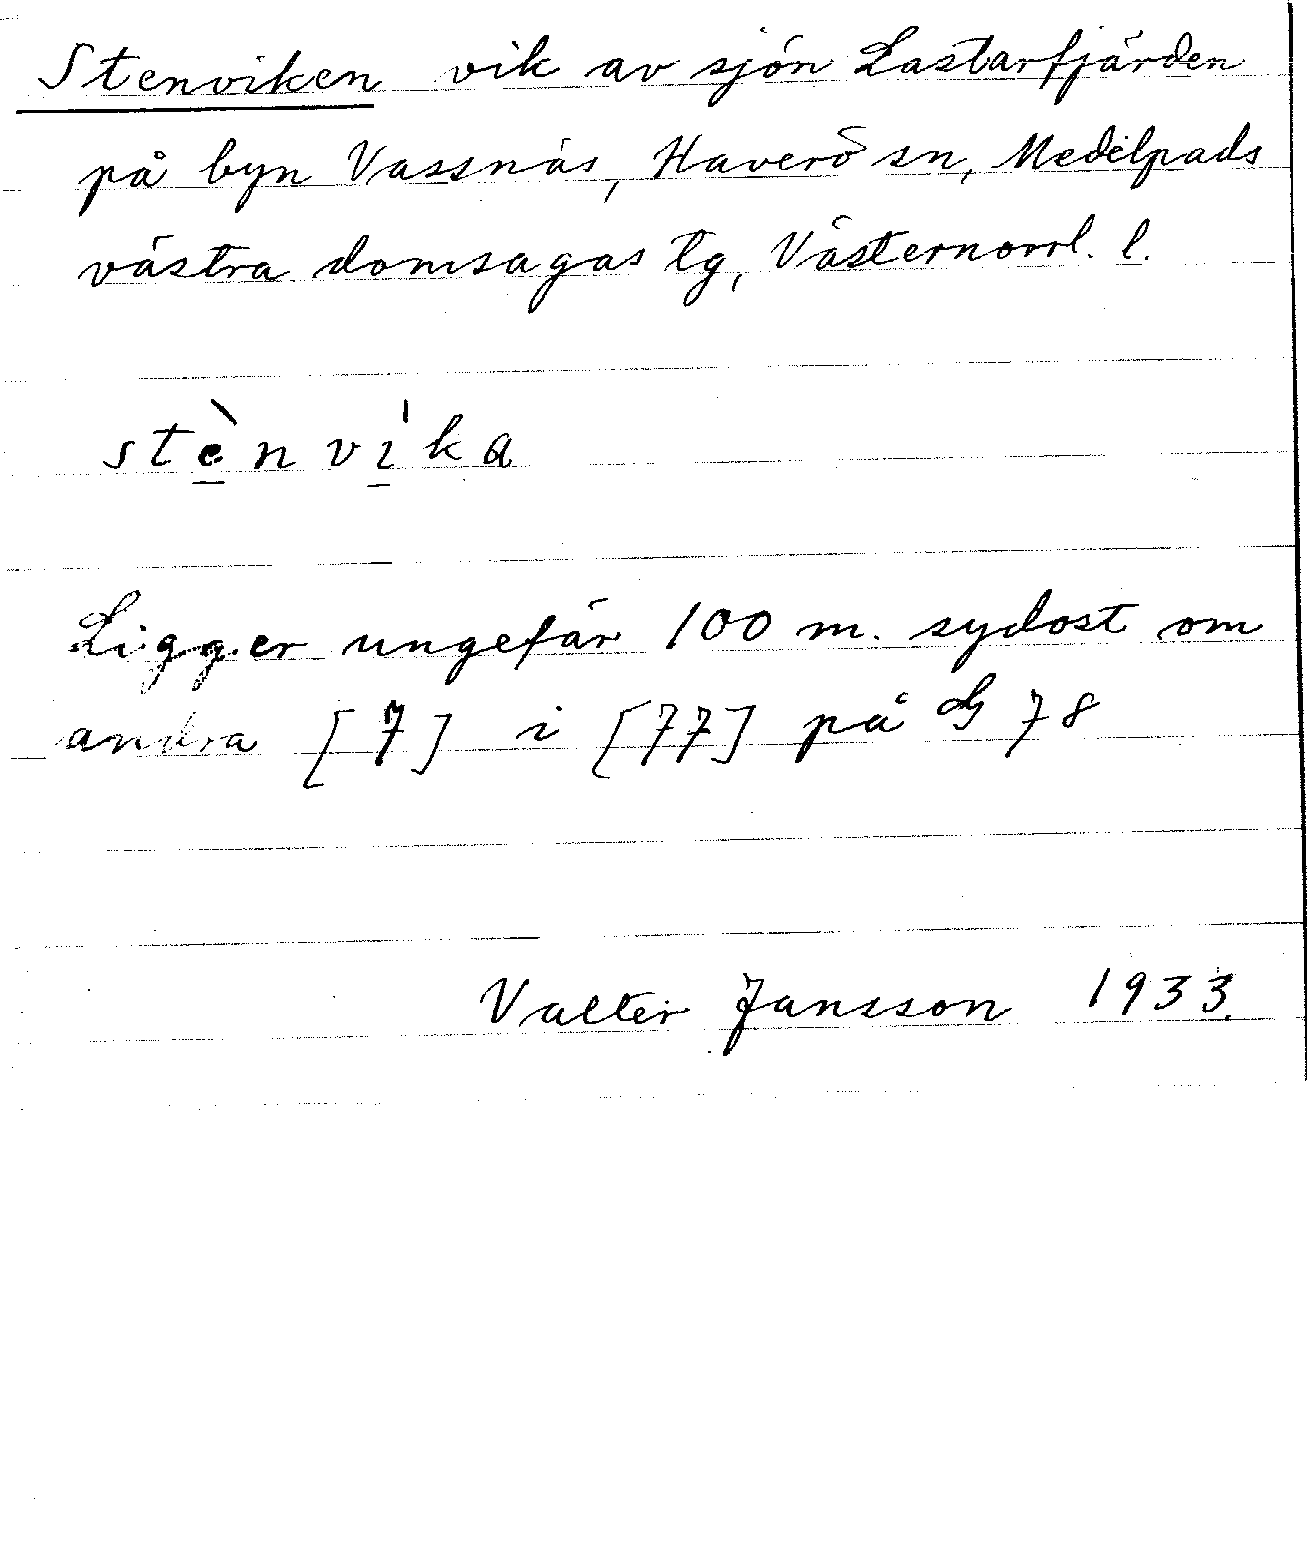 Stenviken vik av sjön Lastarfjärden
på byn Vassnäs, Haverö sn, Medelpads
västra domsagas tg, Västernorrl. l.
stè̱nvi̱̍ka
Ligger ungefär 100 m. sydost om
andra [7] i [77] på G 78
Valter Jansson 1933.